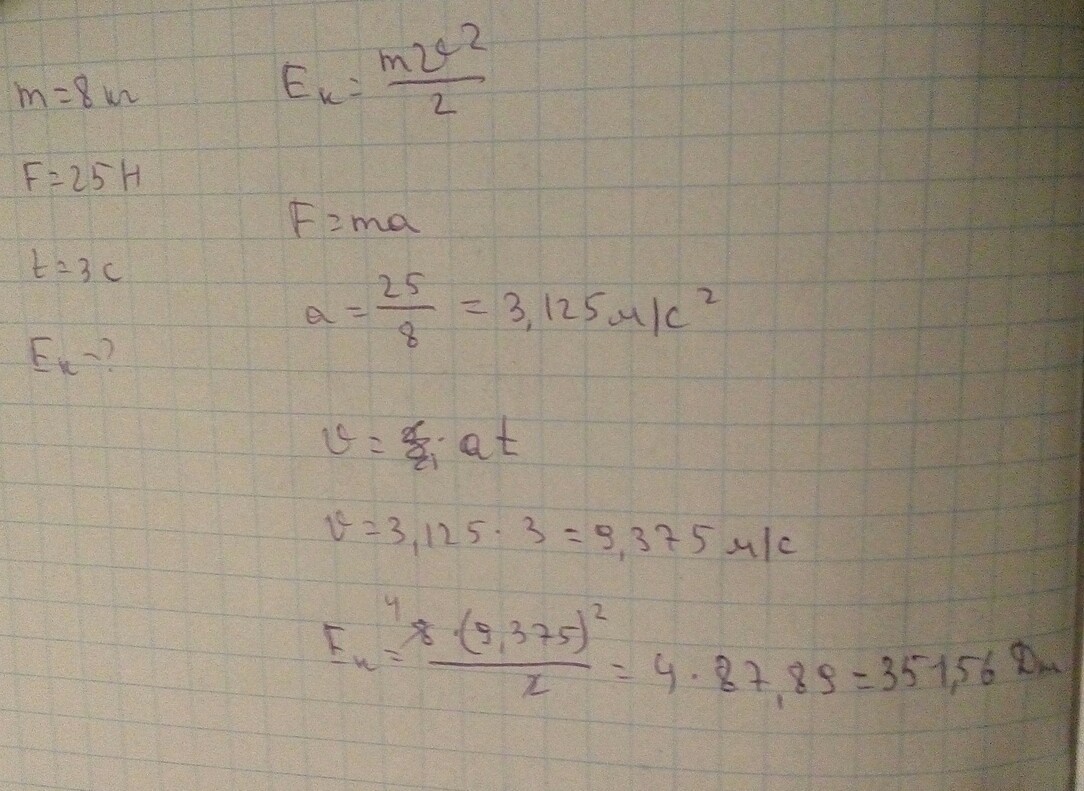 m=8 кг
F=25 Н
t=3 с
Eк-?
Eк = mv²/2
F=ma
a = 25/8 = 3,125 м/с²
v = at
v=3,125 · 3 = 9,375 м/с
Eк = 8 · (9,375)²/2 = 4 · 87,89 = 351,56 Дж